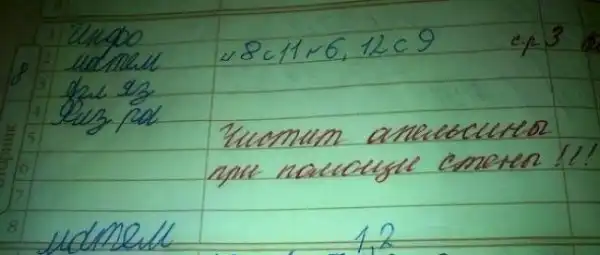 8
вторник
1 Инфо
2 матем н 8 с 11 н 6, 12 с 9 ср 3
3 Агл яз
4 Физ ра
5 Чистит апельсины
6 при помощи стены!!!
7
8
матем 1,2